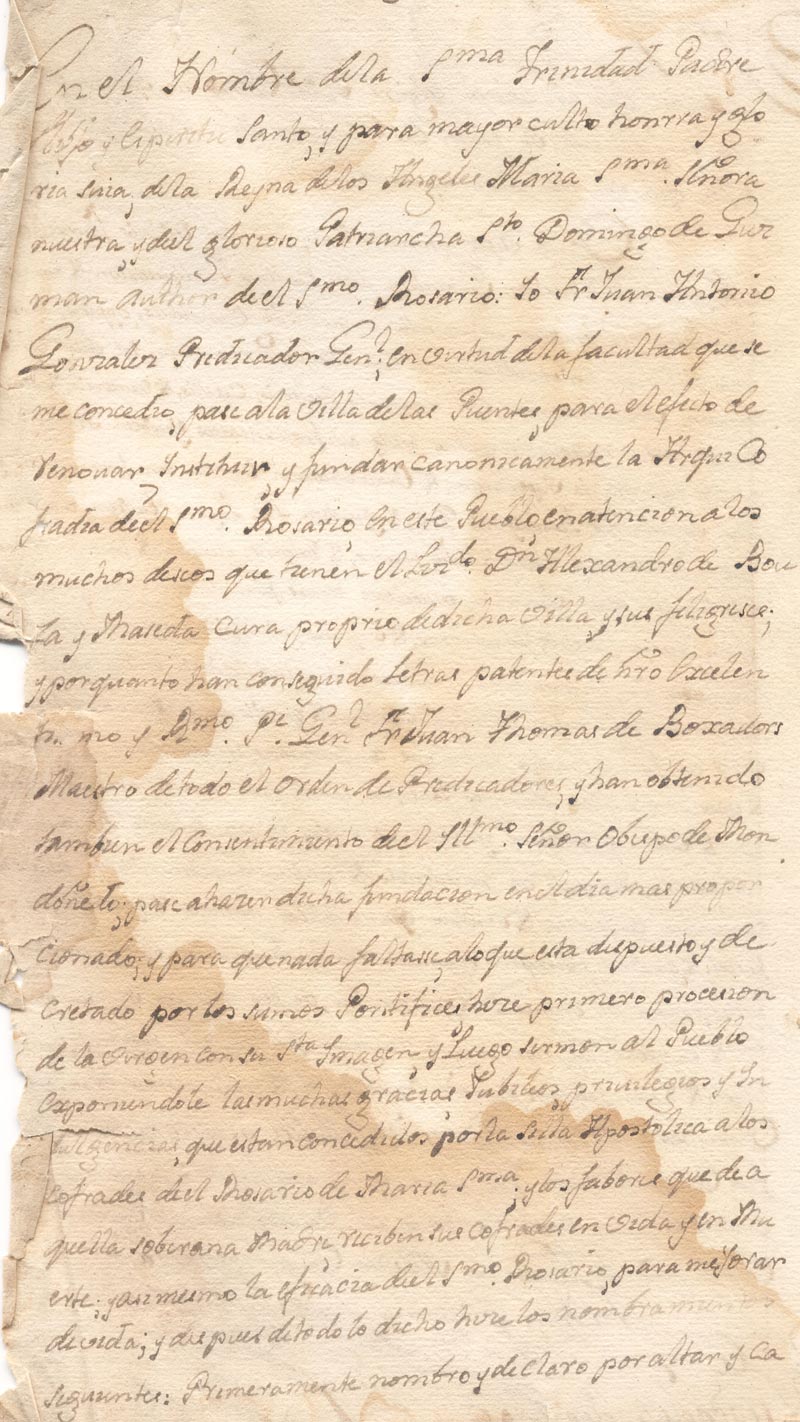 En el Nombre de la Sma Trinidad Padre
Hijo y Espiritu Santo, y para mayor culto honrra y glo
ria suia, de la Reyna de los Angeles Maria Sma. Señora
nuestra, y de el glorioso Patriarcha Sto. Domingo de Guz
man author de el Smo. Rosario: Yo Fr Juan Antonio
Gonzalez Predicador Genl, en virtud de la facultad que se
me concedio, pase a la Villa de las Puentes, para el efecto de
renovar, Instituir, y fundar canonicamente la Arqui Co
fradia de el Smo. Rosario, en este Pueblo en atencion a los
muchos deseos que tienen el Lizdo. Dn Alexandro de Bou
za y Maseda cura proprio de dicha Villa, y sus feligreses;
y por quanto han conseguido Letras patentes de nro Excelen
mo y Rmo. Pe. Genl Fr Juan Thomas de Boxadors
Maestro de todo el Orden de Predicadores, y han obtenido
tambien el Consentimiento de el Yllmo. Señor Obispo de Mon
doñedo; pase a hazer dicha fundacion en el dia mas propor
cionado, y para que nada faltasse, a lo que esta dispuesto y de
cretado por los sumos Pontifices, hize primero procesion
de la Virgen con su Sta Imagen, y Luego sermon al Pueblo
exponiendole las muchas gracias, Jubileos, privilegios y In
dulgencias, que estan concedidos por la Silla Apostolica a los
cofrades de el Rosario de Maria Sma, y los fabores que de a
quella soberana Madre reciben sus cofrades en vida y en mu
erte; y asi mesmo la eficacia de el Smo. Rosario, para mejorar
de vida; y despues de todo lo dicho hize los nombramientos
siguientes: Primeramente nombro y declaro por altar y Ca